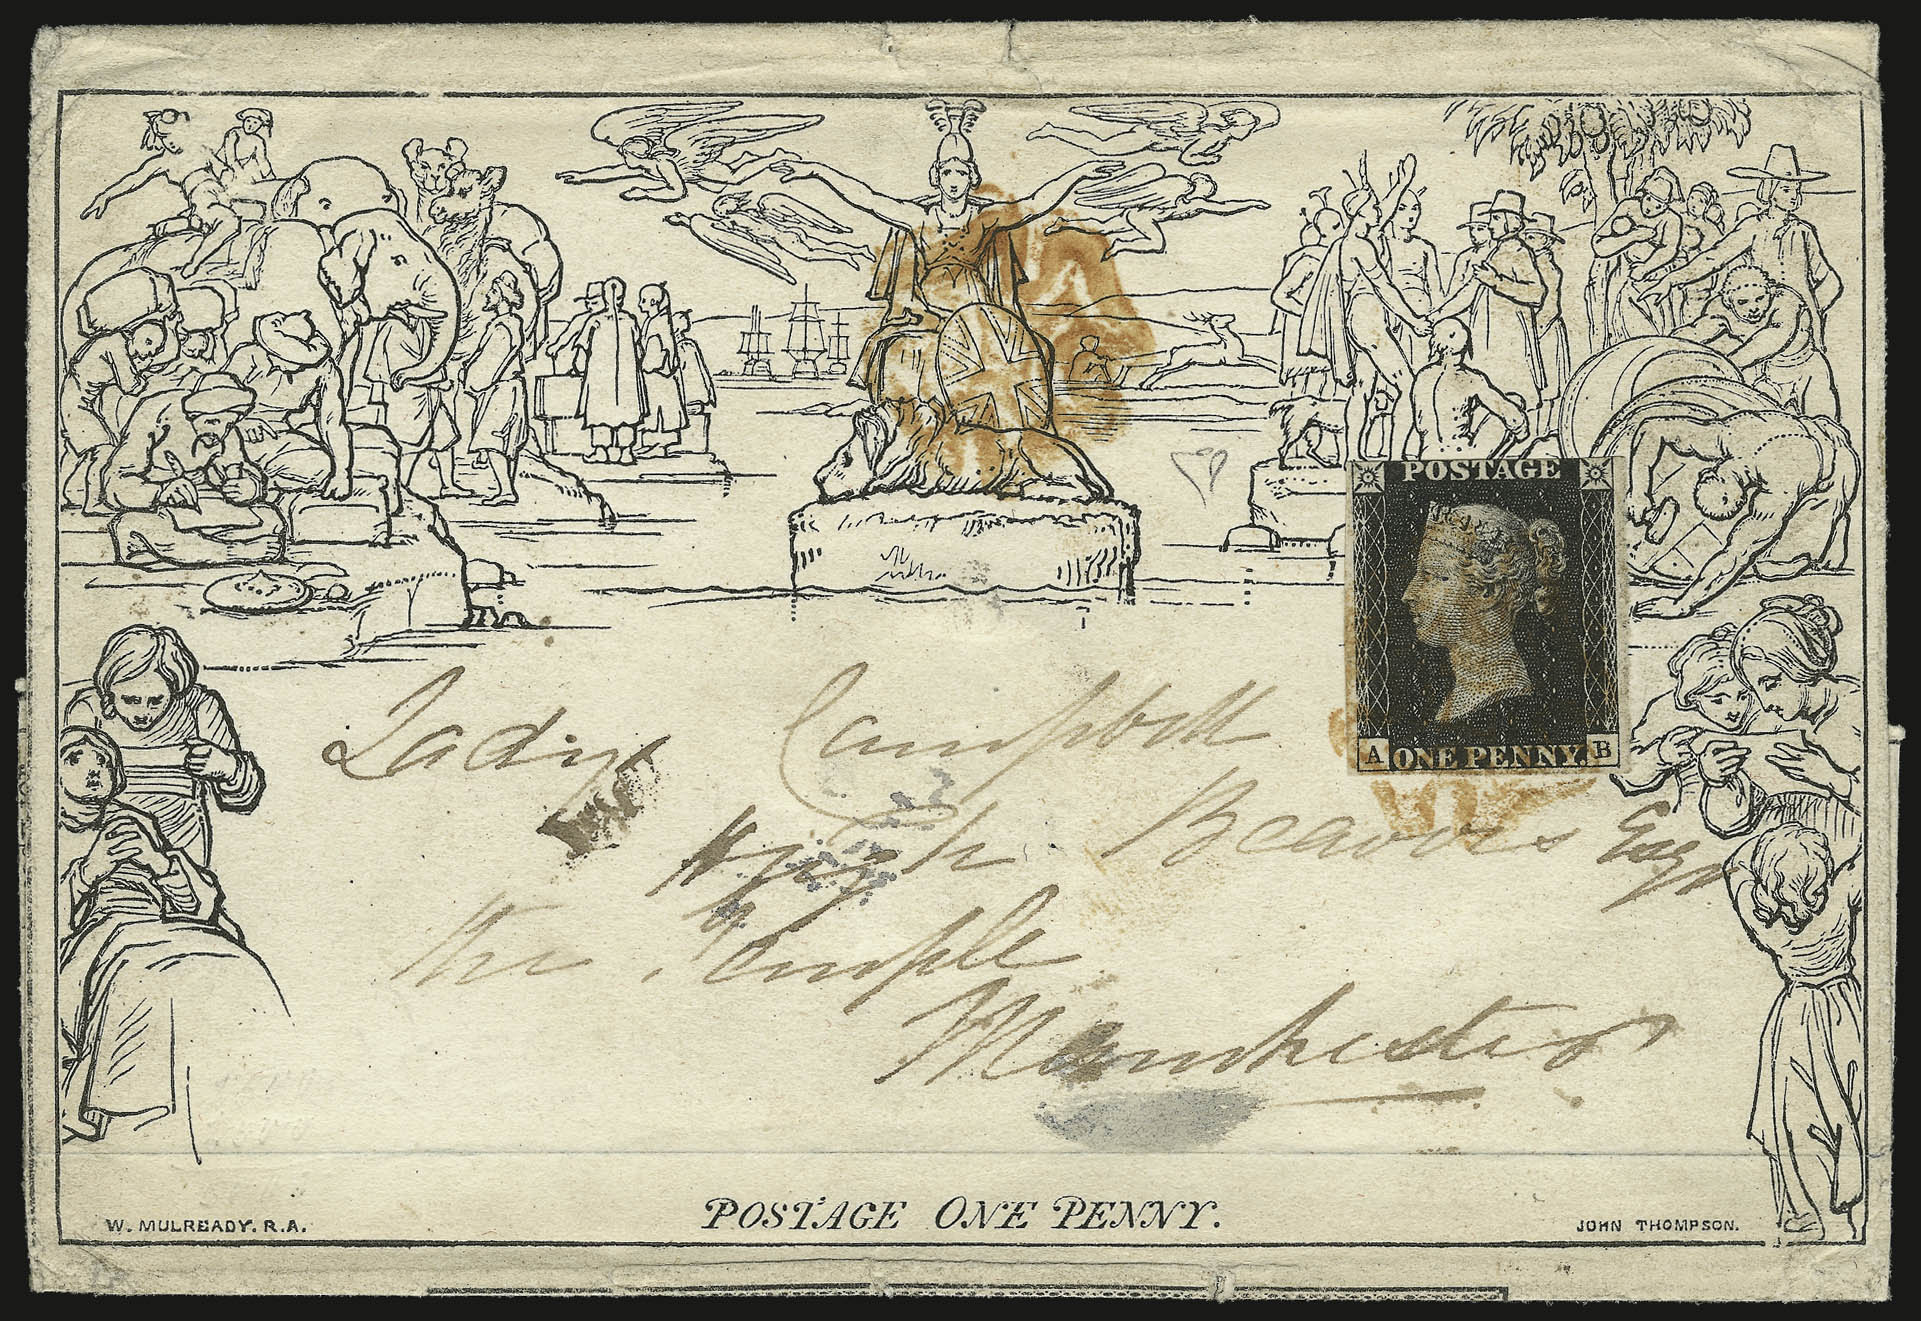 POSTAGE
A ONE PENNY. B
Lady Campbell
Hugh Beavors Esqr
the Temple
Manchester
POSTAGE ONE PENNY.
W. MULREADY. R.A.
JOHN THOMPSON.